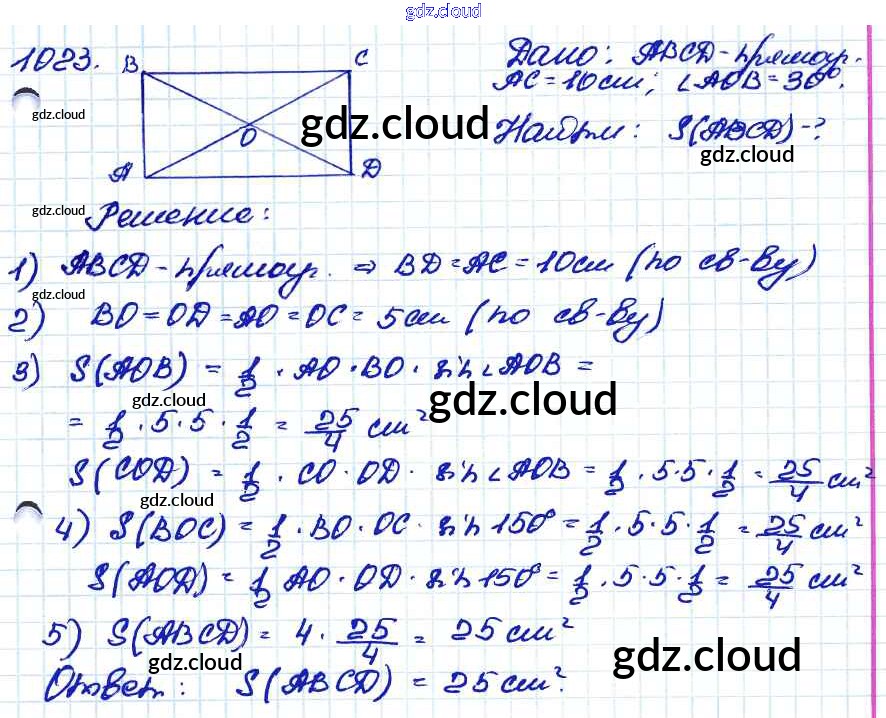 gdz.cloud
gdz.cloud
1023. B C Дано: ABCD - прямоуг.
AC = 10 см; ∠AOB = 30°.
gdz.cloud
O gdz.cloud Найти: S(ABCD) - ?
gdz.cloud
A D
gdz.cloud Решение:
1) ABCD - прямоуг. ⇒ BD = AC = 10 см (по св-ву)
gdz.cloud
2) BO = OD = AO = OC = 5 см (по св-ву)
3) S(AOB) = 1/2 · AO · BO · sin ∠AOB =
gdz.cloud gdz.cloud
= 1/2 · 5 · 5 · 1/2 = 25/4 см²
S(COD) = 1/2 · CO · OD · sin ∠AOB = 1/2 · 5 · 5 · 1/2 = 25/4 см²
gdz.cloud
4) S(BOC) = 1/2 · BO · OC · sin 150° = 1/2 · 5 · 5 · 1/2 = 25/4 см²
S(AOD) = 1/2 AO · OD · sin 150° = 1/2 · 5 · 5 · 1/2 = 25/4 см²
gdz.cloud
5) S(ABCD) = 4 · 25/4 = 25 см²
gdz.cloud gdz.cloud
Ответ: S(ABCD) = 25 см².
gdz.cloud